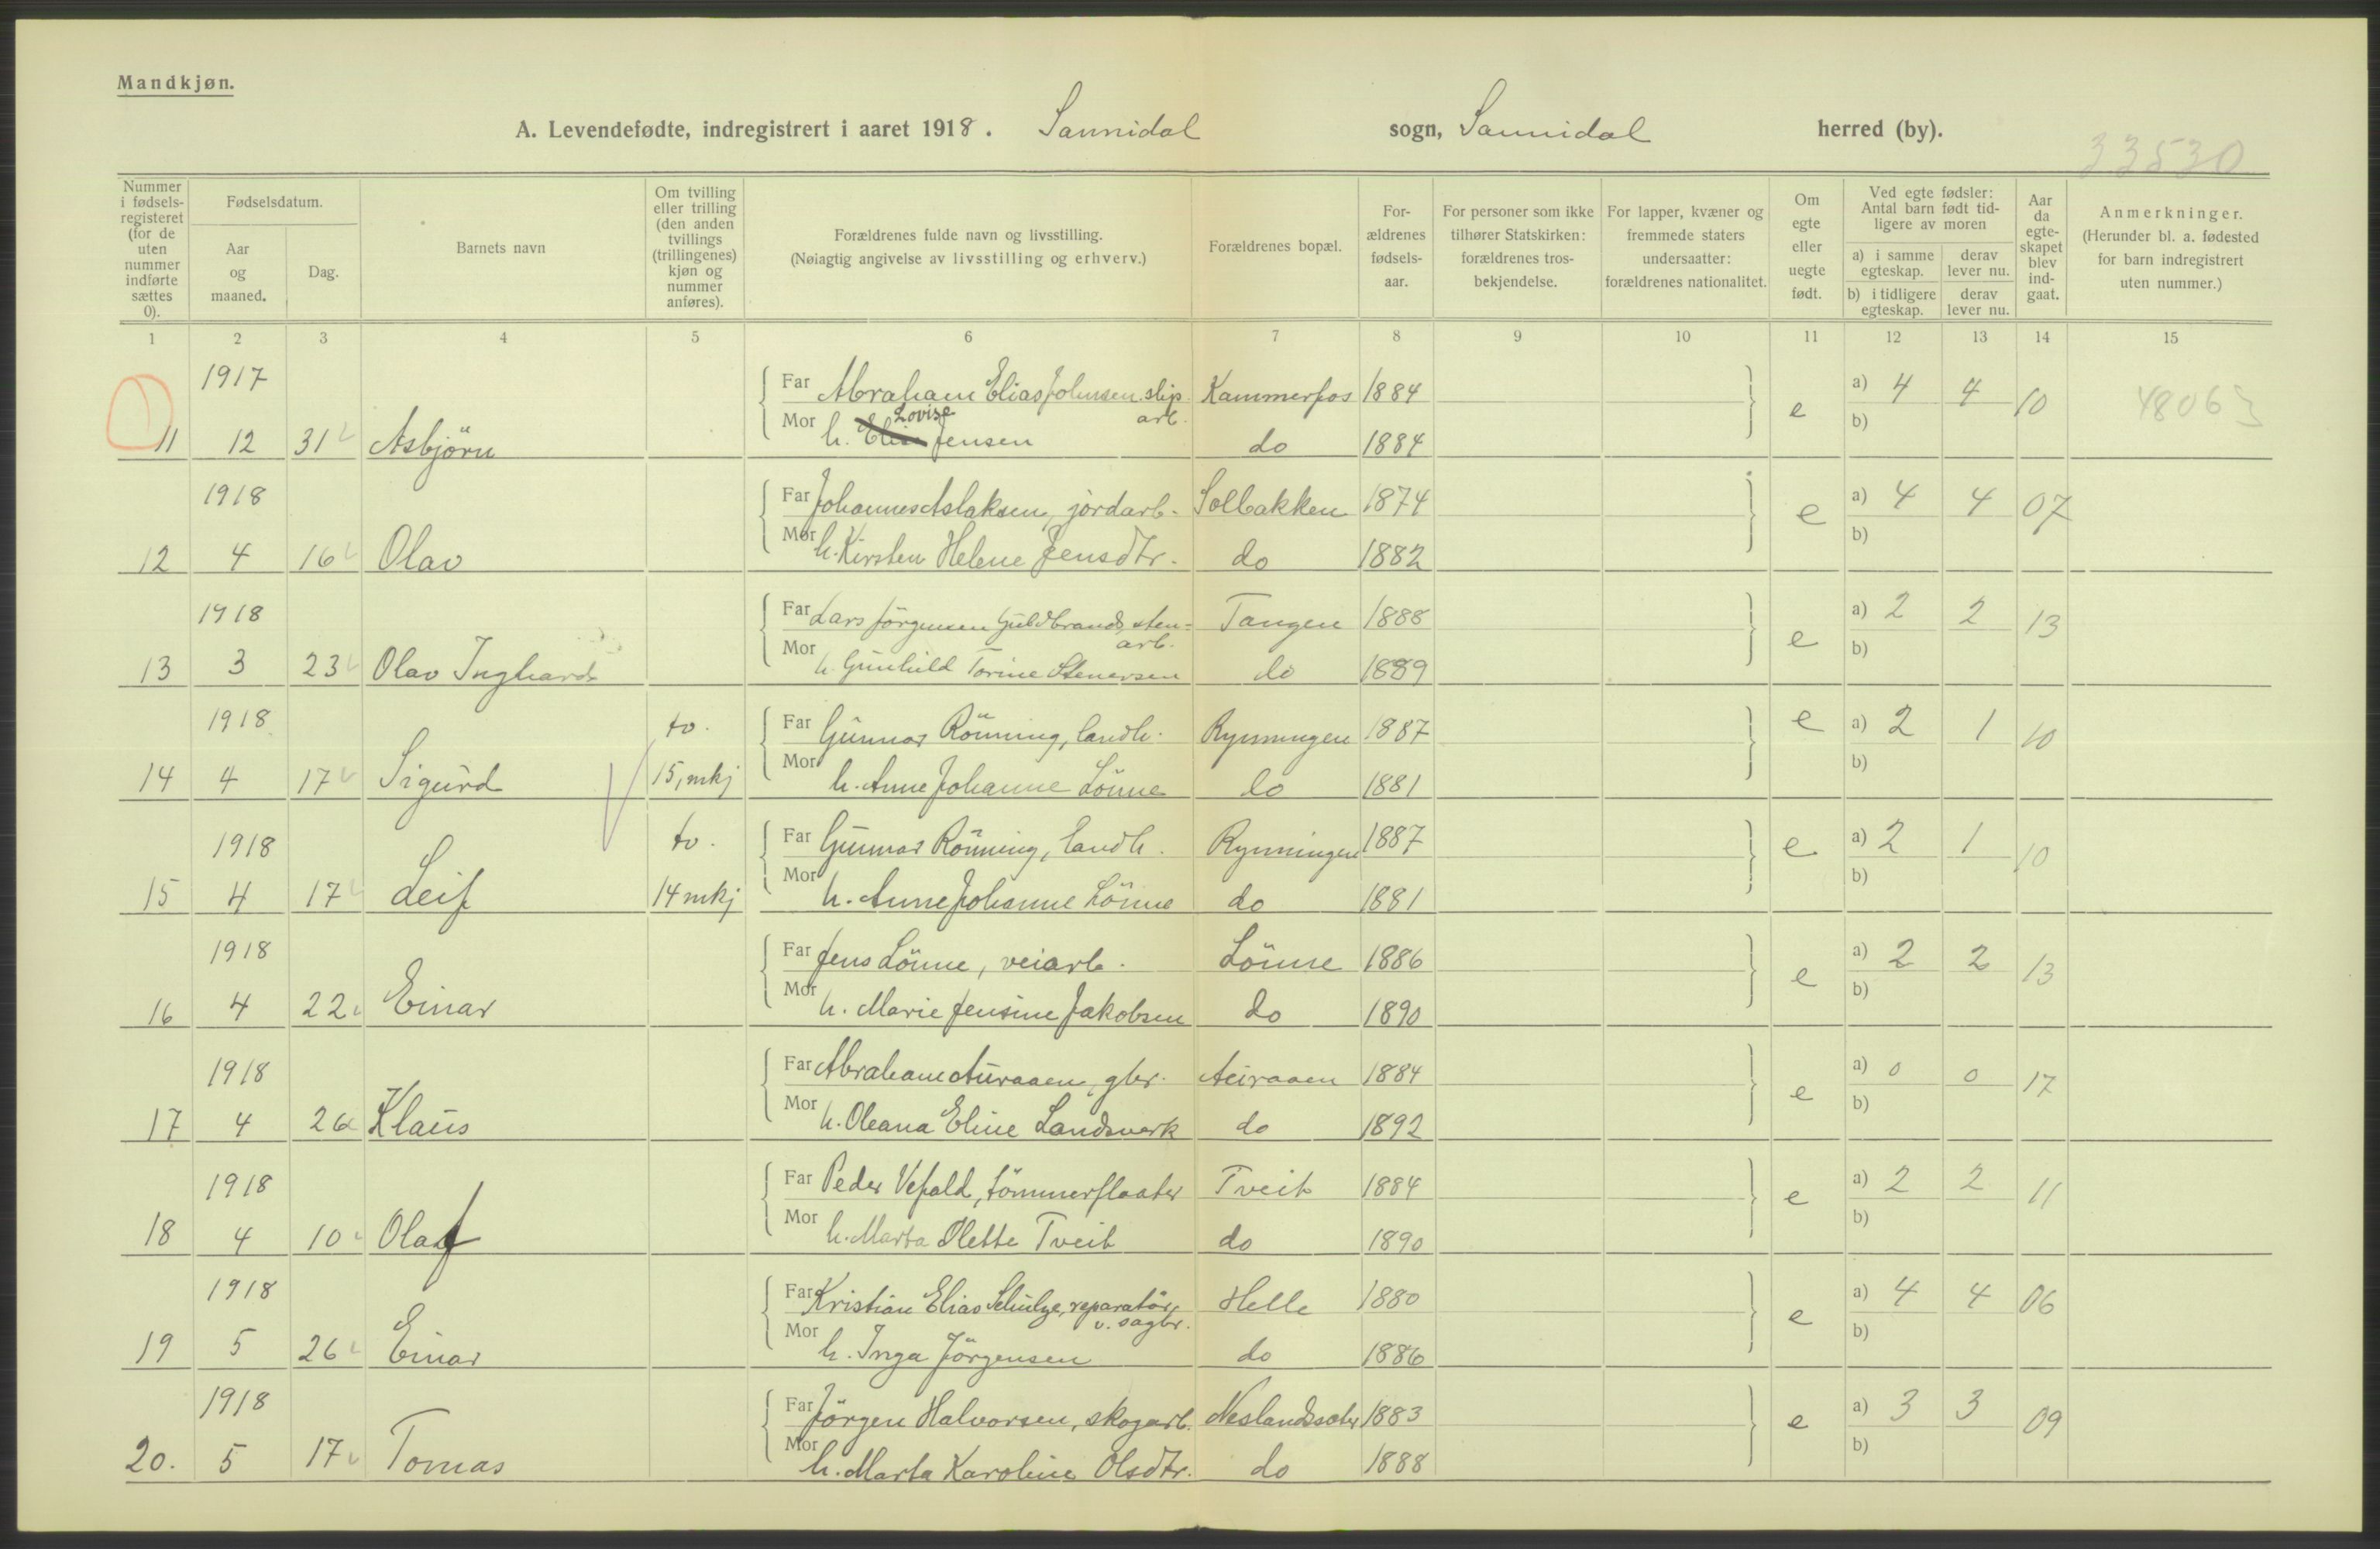 Mandkjøn.
A. Levendefødte, indregistrert i aaret 1918. Sannidal sogn, Sannidal herred (by).
33530
Nummer i fødselsregisteret (for de uten nummer indførte sættes 0).
Fødselsdatum.
Aar og maaned.
Dag.
Barnets navn
Om tvilling eller trilling (den anden tvillings (trillingenes) kjøn og nummer anføres).
Forældrenes fulde navn og livsstilling.
(Nøiagtig angivelse av livsstilling og erhverv.)
Forældrenes bopæl.
Forældrenes fødselsaar.
For personer som ikke tilhører Statskirken: forældrenes trosbekjendelse.
For lapper, kvæner og fremmede staters undersaatter: forældrenes nationalitet.
Om egte eller uegte født.
Ved egte fødsler: Antal barn født tidligere av moren
a) i samme egteskap.
derav lever nu.
b) i tidligere egteskap.
derav lever nu.
Aar da egteskapet blev indgaat.
Anmerkninger.
(Herunder bl. a. fødested for barn indregistrert uten nummer.)
1 2 3 4 5 6 7 8 9 10 11 12 13 14 15
1917 Far Abraham Elias Johnsen slip. arb. Kammerfos 1884 e a) 4 4 10 48063
11 12 31 Asbjörn Mor h. Lovise Jensen do 1884 b)
1918 Far Johannes Aslaksen, jordarb. Solbakken 1874 e a) 4 4 07
12 4 16 Olav Mor h. Kirsten Helene Jensdtr. do 1882 b)
1918 Far Lars Jörgensen Guldbrands, sten=arb. Tangen 1888 e a) 2 2 13
13 3 23 Olav Inghard Mor h. Gunhild Torine Stenersen do 1889 b)
1918 tv. Far Gunnar Rönning, landh. Rynningen 1887 e a) 2 1 10
14 4 17 Sigurd 15, mkj Mor h. Anne Johanne Lönne do 1881 b)
1918 tv. Far Gunnar Rönning, landh. Rynningen 1887 e a) 2 1 10
15 4 17 Leif 14 mkj Mor h. Anne Johanne Lönne do 1881 b)
1918 Far Jens Lönne, veiarb. Lönne 1886 e a) 2 2 13
16 4 22 Einar Mor h. Marie Jensine Jakobsen do 1890 b)
1918 Far Abraham Auraaen, gbr. 1884 e a) 0 0 17
17 4 26 Klaus Mor h. Oleana Eline Landsverk do 1892 b)
1918 Far Peder Vefald, tömmerflaater Tveit 1884 e a) 2 2 11
18 4 10 Olaf Mor h. Marta Olette Tveit do 1890 b)
1918 Far Kristian Elias Schulze, reparatör v. sagbr. Helle 1880 e a) 4 4 06
19 5 26 Einar Mor h. Inga Jörgensen do 1886 b)
1918 Far Jörgen Halvorsen, skogarb. Neslandssæter 1883 e a) 3 3 09
20. 5 17 Tomas Mor h. Marta Karoline Olsdtr. do 1888 b)